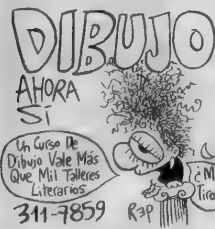 DIBUJO
AHORA
SÍ
Un Curso De
Dibujo Vale Más
Que Mil Talleres
Literarios
311-7859
R3P
¡M
Tiro